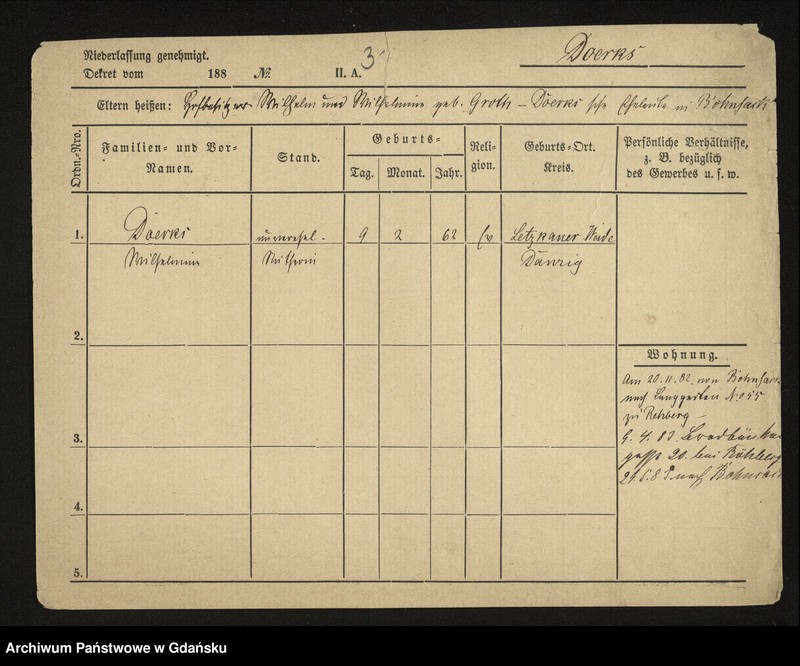 Niederlassung genehmigt.
Dekret vom 188 No. II. A. 3
Doerks
Eltern heißen: Hofbesitzer Wilhelm und Wilhelmine geb. Groth – Doerks'sche Eheleute in Bohnsack
Ordn.-Nro.
Familien- und Vor-Namen.
Stand.
Geburts-
Tag. Monat. Jahr.
Religion.
Geburts-Ort.
Kreis.
Persönliche Verhältnisse,
z. B. bezüglich
des Gewerbes u. s. w.
1. Doerks unverehel. 9 2 62 Ev Letzkauer Weide
Wilhelmine Danzig
2.
Wohnung.
Am 20.11.82 von Bohnsack
nach Langgarten No 55
zu Rehberg
3.
9. 4. 83
gasse 20. bei
nach Bohnsack
4.
5.
Archiwum Państwowe w Gdańsku